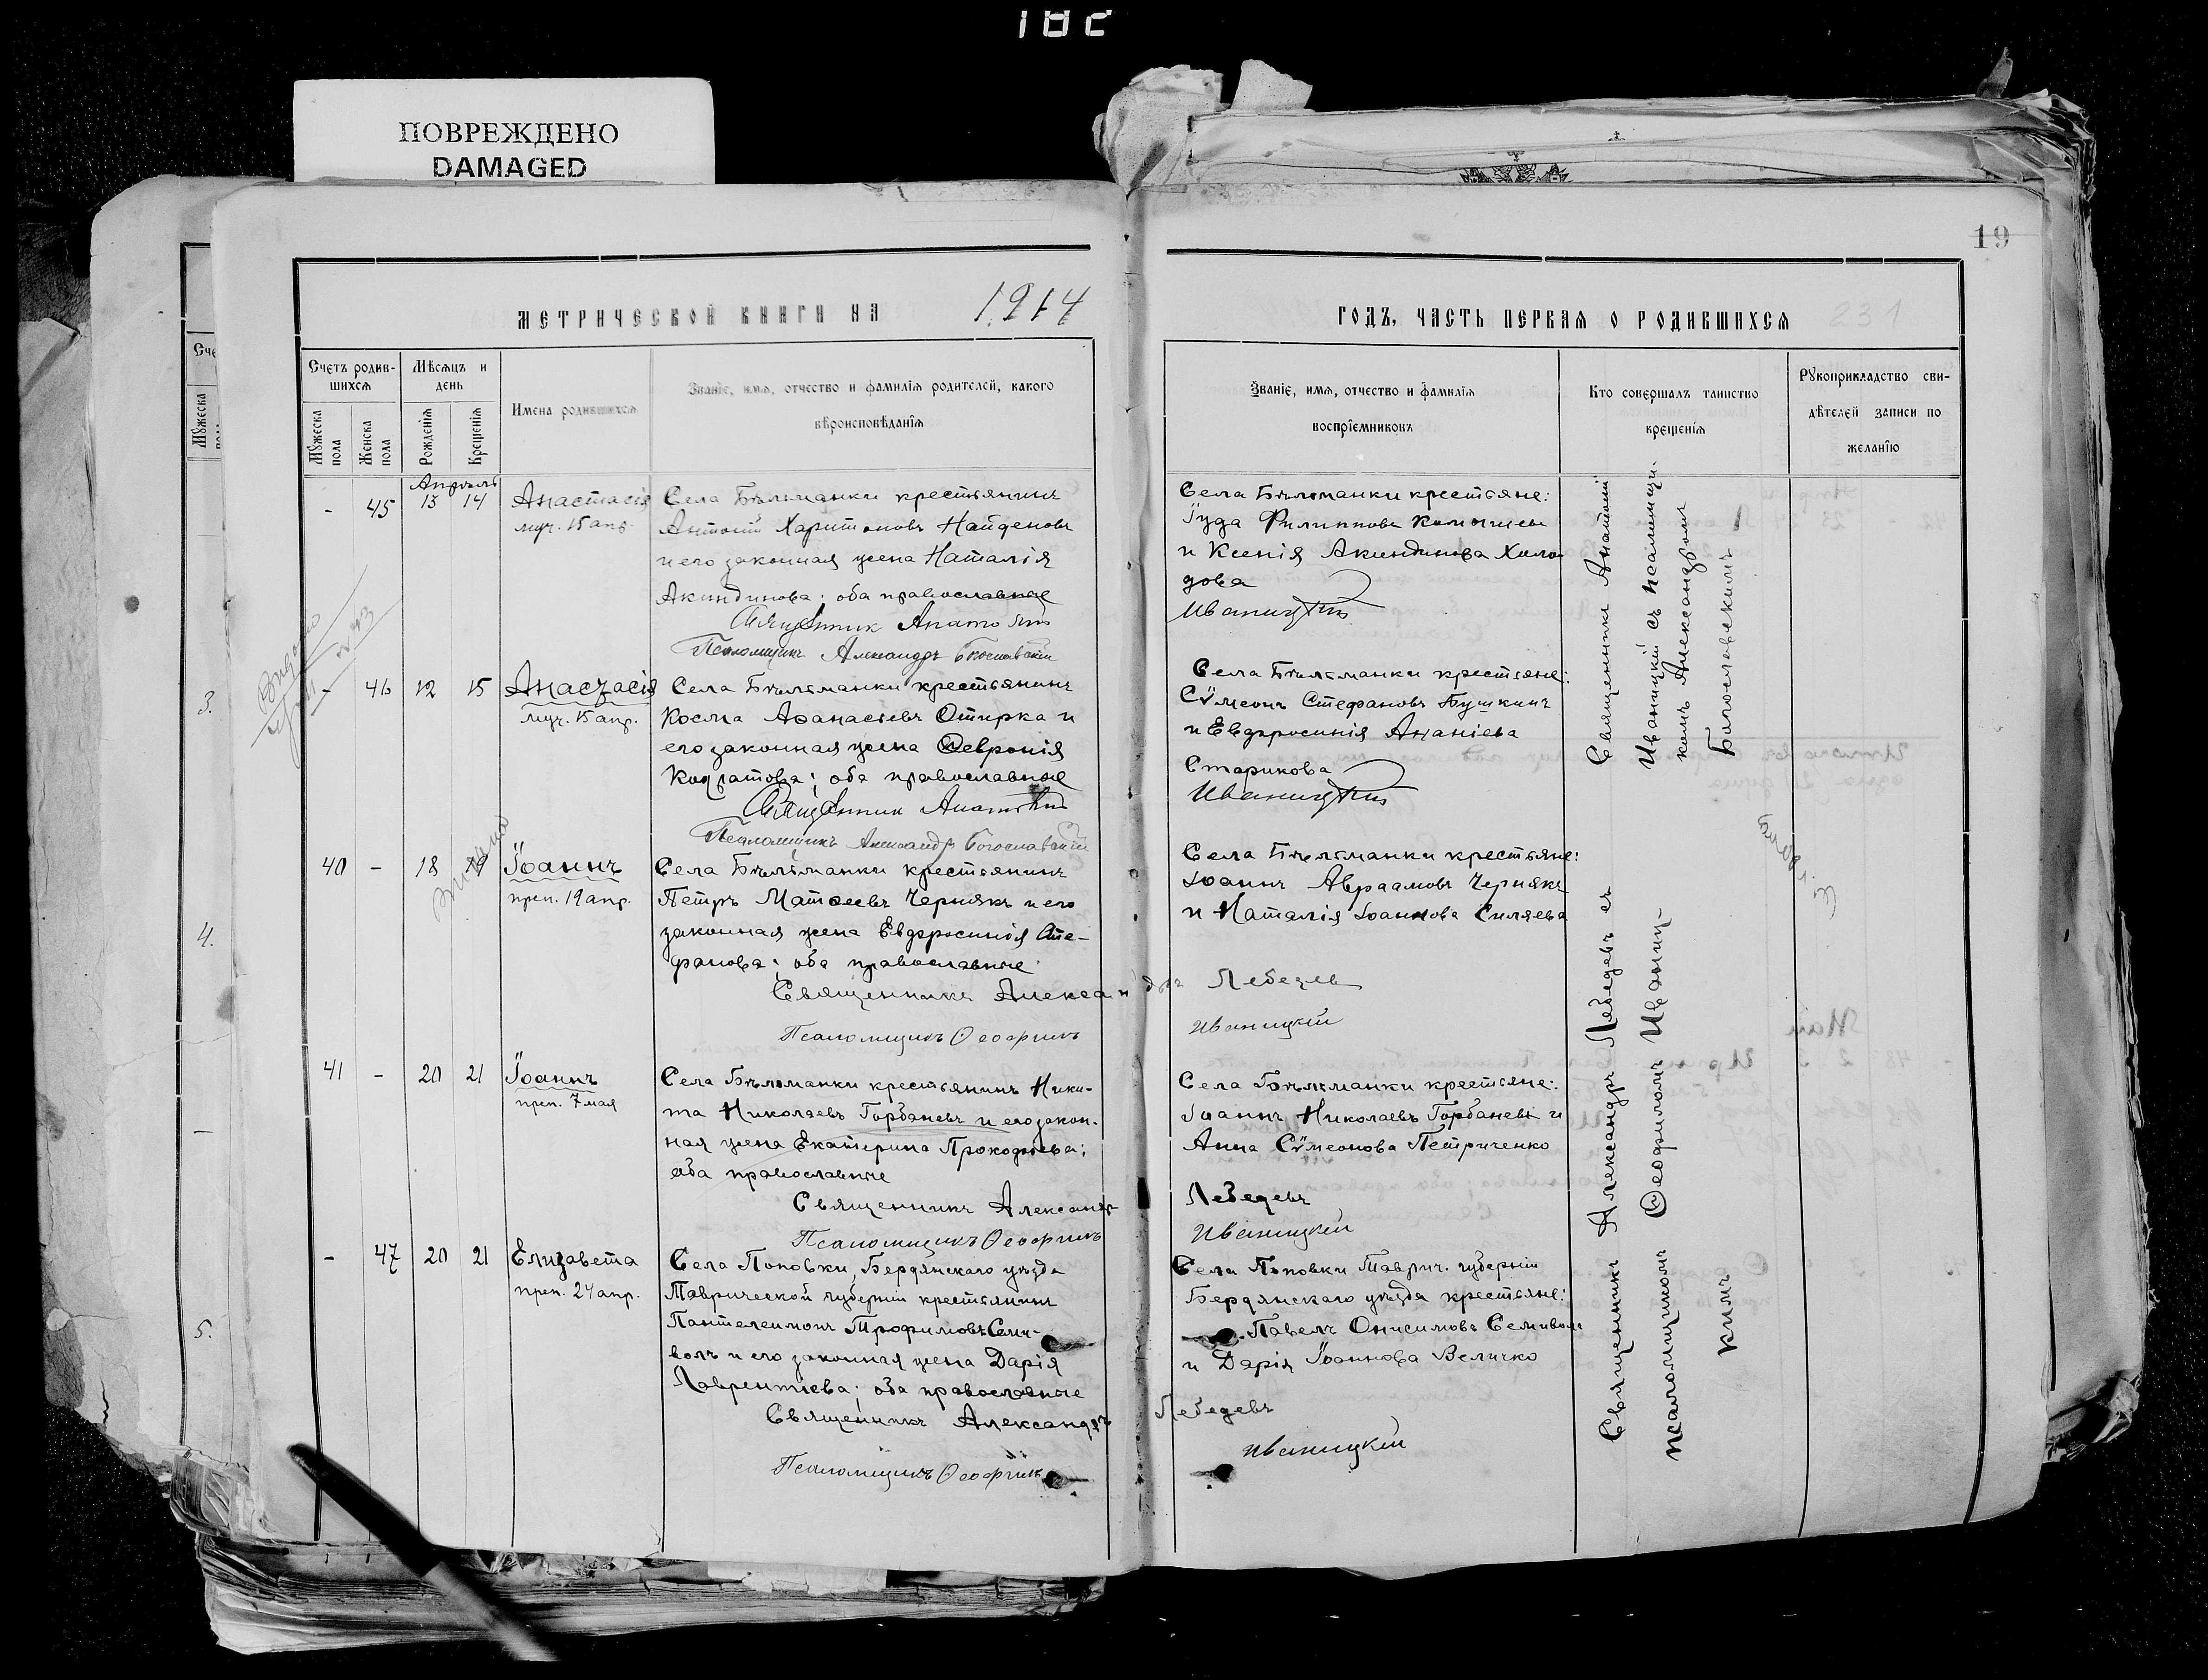 182
ПОВРЕЖДЕНО
DAMAGED
19
МЕТРИЧЕСКОЙ КНИГИ НА 1914
ГОДЪ, ЧАСТЬ ПЕРВАЯ О РОДИВШИХСЯ
231
Счетъ родив-
шихся
Мѣсяцъ и
день
Мужеска
пола
Женска
пола
Рожденія
Крещенія
Имена родившихся
Званіе, имя, отчество и фамилія родителей, какого
вѣроисповѣданія
Званіе, имя, отчество и фамилія
воспріемниковъ
Кто совершалъ таинство
крещенія
Рукоприкладство сви-
дѣтелей записи по
желанію
Апрѣль
- 45 13 14 Анастасія
муч. 15 апр.
Села Бѣльманки крестьянинъ
Антоній Харитоновъ Найденовъ
и его законная жена Наталія
Акиндинова; оба православные
Священник Анатолій
Псаломщикъ Александръ Богословскій
Села Бѣльманки крестьяне:
Іуда Филипповъ
и Ксенія Акиндинова Холо
дова
Иваницкій
Священникъ Анатолій
Иваницкій съ псаломщи-
комъ Александромъ
Богословскимъ
- 46 12 15 Анастасія
муч. 15 апр.
Села Бѣльманки крестьянинъ
Косма Аѳанасіевъ Отирка и
его законная жена Ѳевронія
Кодратова; оба православные
Священник Анатолій
Псаломщикъ Александръ Богословскій
Села Бѣльманки крестьяне:
Сѵмеонъ Стефановъ Бушкинъ
и Евдфросинія Ананіева
Старикова
Иваницкій
40 - 18 19 Іоаннъ
преп. 19 апр.
Села Бѣльманки крестьянинъ
Петръ Матѳеевъ Чернякъ и его
законная жена Евдфросинія Сте-
фанова; оба православные
Священникъ Александръ Лебедевъ
Псаломщикъ Ѳеофилъ Иваницкій
Села Бѣльманки крестьяне:
Іоаннъ Авраамовъ Чернякъ
и Наталія Іоаннова Силяева
Священникъ Александръ Лебедевъ съ
псаломщикомъ Ѳеофиломъ Иваниц-
кимъ
41 - 20 21 Іоаннъ
преп. 7 мая
Села Бѣльманки крестьянинъ Ники-
та Николаевъ Горбаневъ и его закон-
ная жена Екатерина Прокофіева;
оба православные
Священникъ Александръ
Псаломщикъ Ѳеофилъ
Села Бѣльманки крестьяне:
Іоаннъ Николаевъ Горбаневъ и
Анна Сѵмеонова Петриченко
Лебедевъ
Иваницкій
- 47 20 21 Елизавета
преп. 24 апр.
Села Поповки, Бердянскаго уѣзда
Таврической губерніи крестьянинъ
Пантелеимонъ Трофимовъ Семи-
волъ и его законная жена Дарія
Лаврентіева; оба православные
Священникъ Александръ
Псаломщикъ Ѳеофилъ
Села Поповки Таврич. губерніи
Бердянскаго уѣзда крестьяне:
Павелъ Онисимовъ Семиволъ
и Дарія Іоаннова Величко
Лебедевъ
Иваницкій
3.
4.
5.